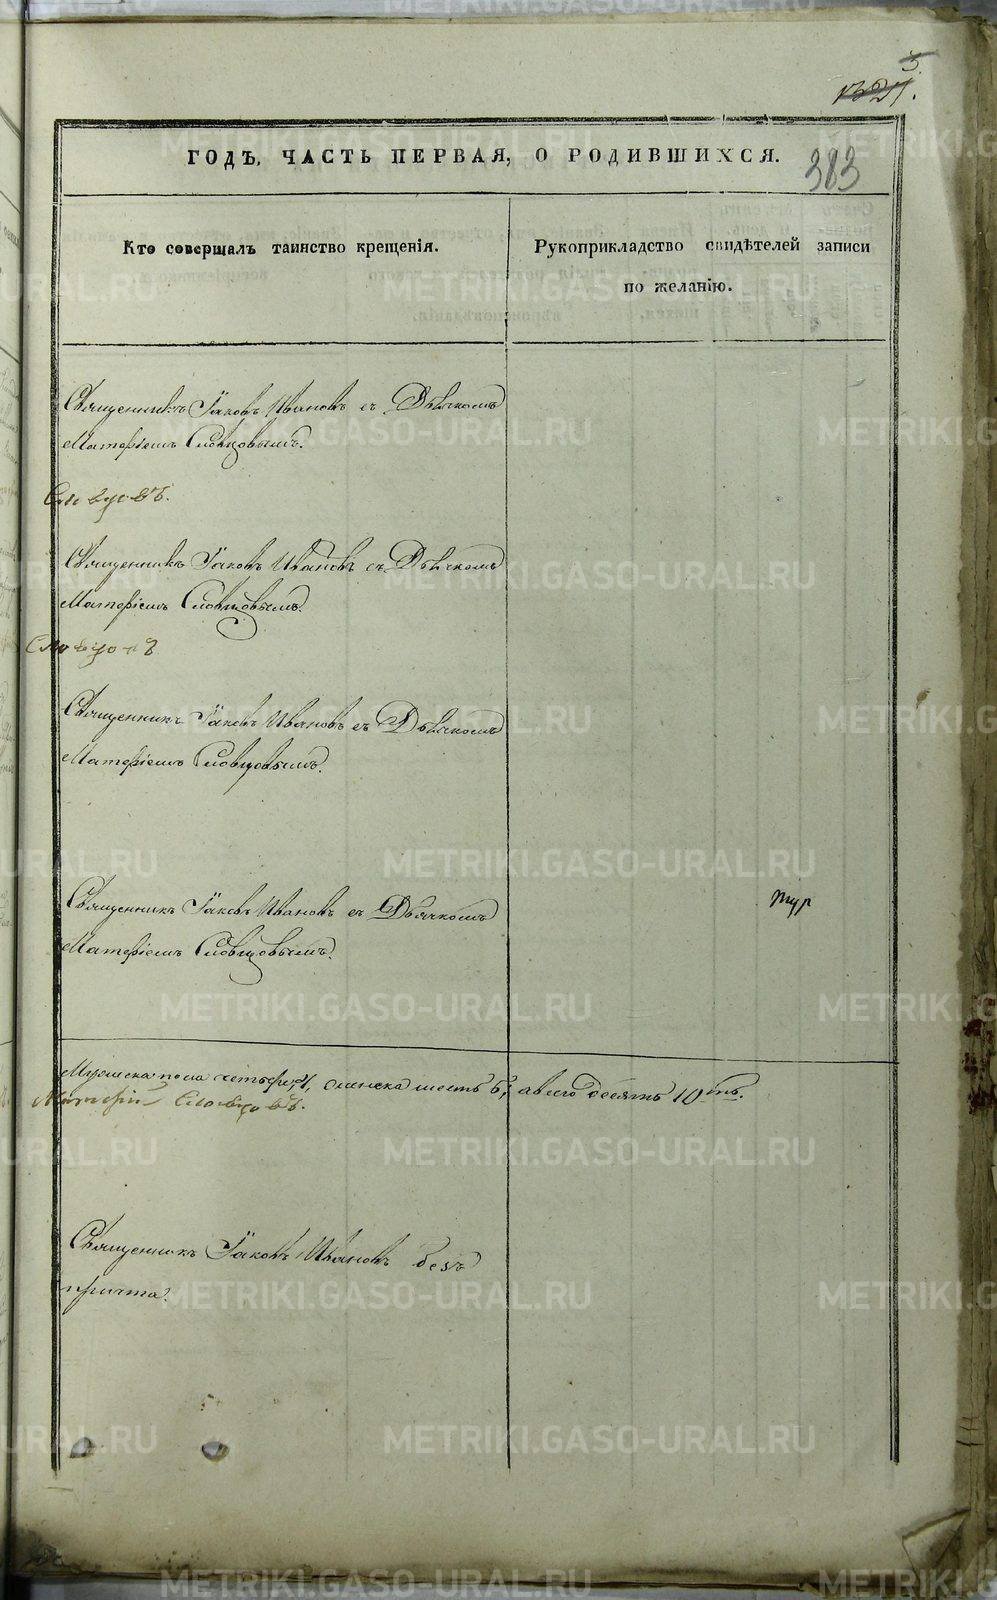 5.
1321.
ГОДЪ, ЧАСТЬ ПЕРВАЯ, О РОДИВШИХСЯ.
383
Кто совершалъ таинство крещенія.
Рукоприкладство свидѣтелей записи
по желанію.
Священникъ Іаковъ Ивановъ съ Дьячкомъ
Матѳіемъ Словцовымъ.
Словцовъ.
Священникъ Іаковъ Ивановъ съ Дьячкомъ
Матѳіемъ Словцовымъ.
Словцовъ
Священникъ Іаковъ Ивановъ съ Дьячкомъ
Матѳіемъ Словцовымъ.
Священникъ Іаковъ Ивановъ съ Дьячкомъ
Матѳіемъ Словцовымъ.
Мужеска пола четыре, 4, женска шесть 6, а всего десять 10ть.
Словцовъ.
Священникъ Іаковъ Ивановъ безъ
причта.
METRIKI.GASO-URAL.RU